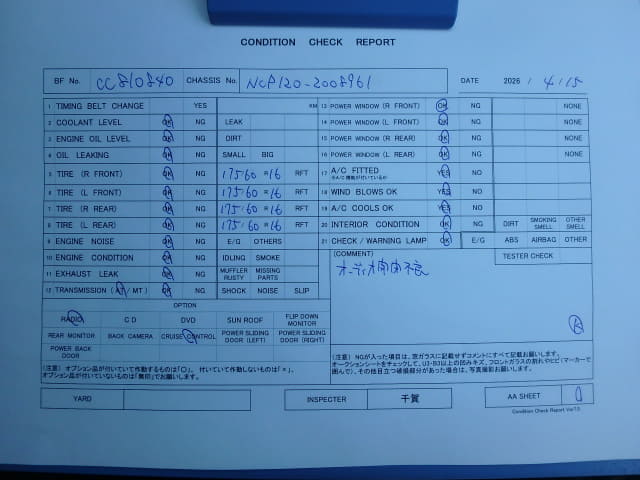 CONDITION CHECK REPORT
BF No. CC810840 CHASSIS No. NCP120-2008961 DATE 2026 / 4 / 15
1 TIMING BELT CHANGE YES KM
2 COOLANT LEVEL OK NG LEAK
3 ENGINE OIL LEVEL OK NG DIRT
4 OIL LEAKING OK NG SMALL BIG
5 TIRE (R FRONT) OK NG 175-60 R16 RFT
6 TIRE (L FRONT) OK NG 175-60 R16 RFT
7 TIRE (R REAR) OK NG 175-60 R16 RFT
8 TIRE (L REAR) OK NG 175-60 R16 RFT
9 ENGINE NOISE OK NG E/G OTHERS
10 ENGINE CONDITION OK NG IDLING SMOKE
11 EXHAUST LEAK OK NG MUFFLER RUSTY MISSING PARTS
12 TRANSMISSION (AT / MT) OK NG SHOCK NOISE SLIP
13 POWER WINDOW (R FRONT) OK NG NONE
14 POWER WINDOW (L FRONT) OK NG NONE
15 POWER WINDOW (R REAR) OK NG NONE
16 POWER WINDOW (L REAR) OK NG NONE
17 A/C FITTED YES NO
18 WIND BLOWS OK YES NO
19 A/C COOLS OK YES NO
20 INTERIOR CONDITION OK NG DIRT SMOKING SMELL OTHER SMELL
21 CHECK / WARNING LAMP OK E/G ABS AIRBAG OTHER
(COMMENT) TESTER CHECK
オーディオ
不良
OPTION
RADIO CD DVD SUN ROOF FLIP DOWN MONITOR
REAR MONITOR BACK CAMERA CRUISE CONTROL POWER SLIDING DOOR (LEFT) POWER SLIDING DOOR (RIGHT)
POWER BACK DOOR
(注意) オプション品が付いていて作動するものは「○」。付いていて作動しないものは「×」。
オプション品が付いていないものは「無印」でお願いします。
(注意) NGが入った項目は、窓ガラスに記載せずコメントにすべて記載お願いします。
オークションシートをチェックして、U3・B3以上の凹みキズ、フロントガラスの割れやヒビ(マーカーで
囲んで)、その他目立つ破損部分があった場合は、写真撮影お願いします。
YARD INSPECTER 千賀 AA SHEET
Condition Check Report Ver7.0